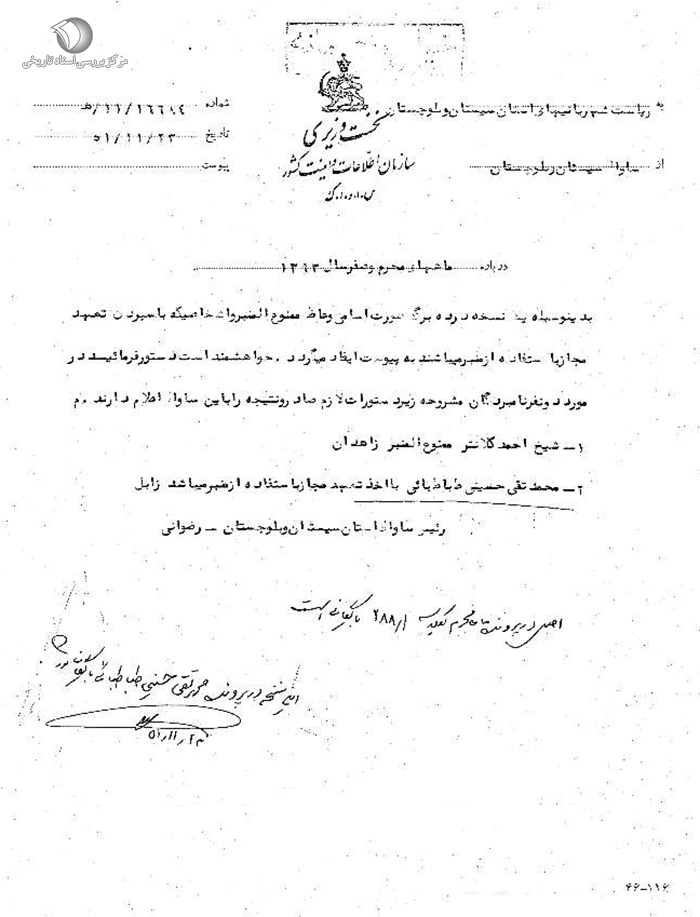 مرکز بررسی اسناد تاریخی
به ریاست شهربانیهای استان سیستان و بلوچستان
نخست وزیری
شماره ۱۶۶۸۴/۱۱/ه‍
از ساواک سیستان و بلوچستان
سازمان اطلاعات و امنیت کشور
تاریخ ۵۱/۱۱/۲۳
س.ا.و.ا.ک
پیوست
درباره ماههای محرم و صفر سال ۱۳۹۳
بدینوسیله یک نسخه در ده برگ صورت اسامی وعاظ ممنوع المنبر و اشخاصیکه با سپردن تعهد
مجاز باستفاده از منبر میباشند به پیوست ایفاد میگردد . خواهشمند است دستور فرمائید در
مورد دو نفر نامبردگان مشروحه زیر دستورات لازم صادر و نتیجه را باین ساواک اعلام دارند
۱ــ شیخ احمد کلانتر ممنوع المنبر زاهدان
۲ــ محمد تقی حسینی طباطبائی با اخذ تعهد مجاز باستفاده از منبر میباشد زابل
رئیس ساواک استان سیستان و بلوچستان ــ رضوانی
اصل در پرونده محرم ۲۸۸ بایگانی است
این نسخه در پرونده محمد تقی حسینی طباطبائی بایگانی شود
۴۶-۱۱۶